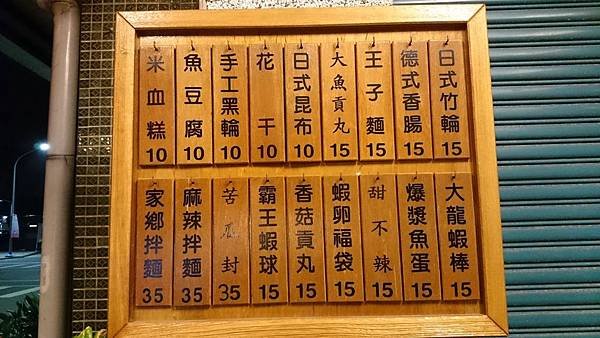 日式竹輪 15
德式香腸 15
王子麵 15
大魚貢丸 15
日式昆布 10
花干 10
手工黑輪 10
魚豆腐 10
米血糕 10
大龍蝦棒 15
爆漿魚蛋 15
甜不辣 15
蝦卵福袋 15
香菇貢丸 15
霸王蝦球 15
苦瓜封 35
麻辣拌麵 35
家鄉拌麵 35